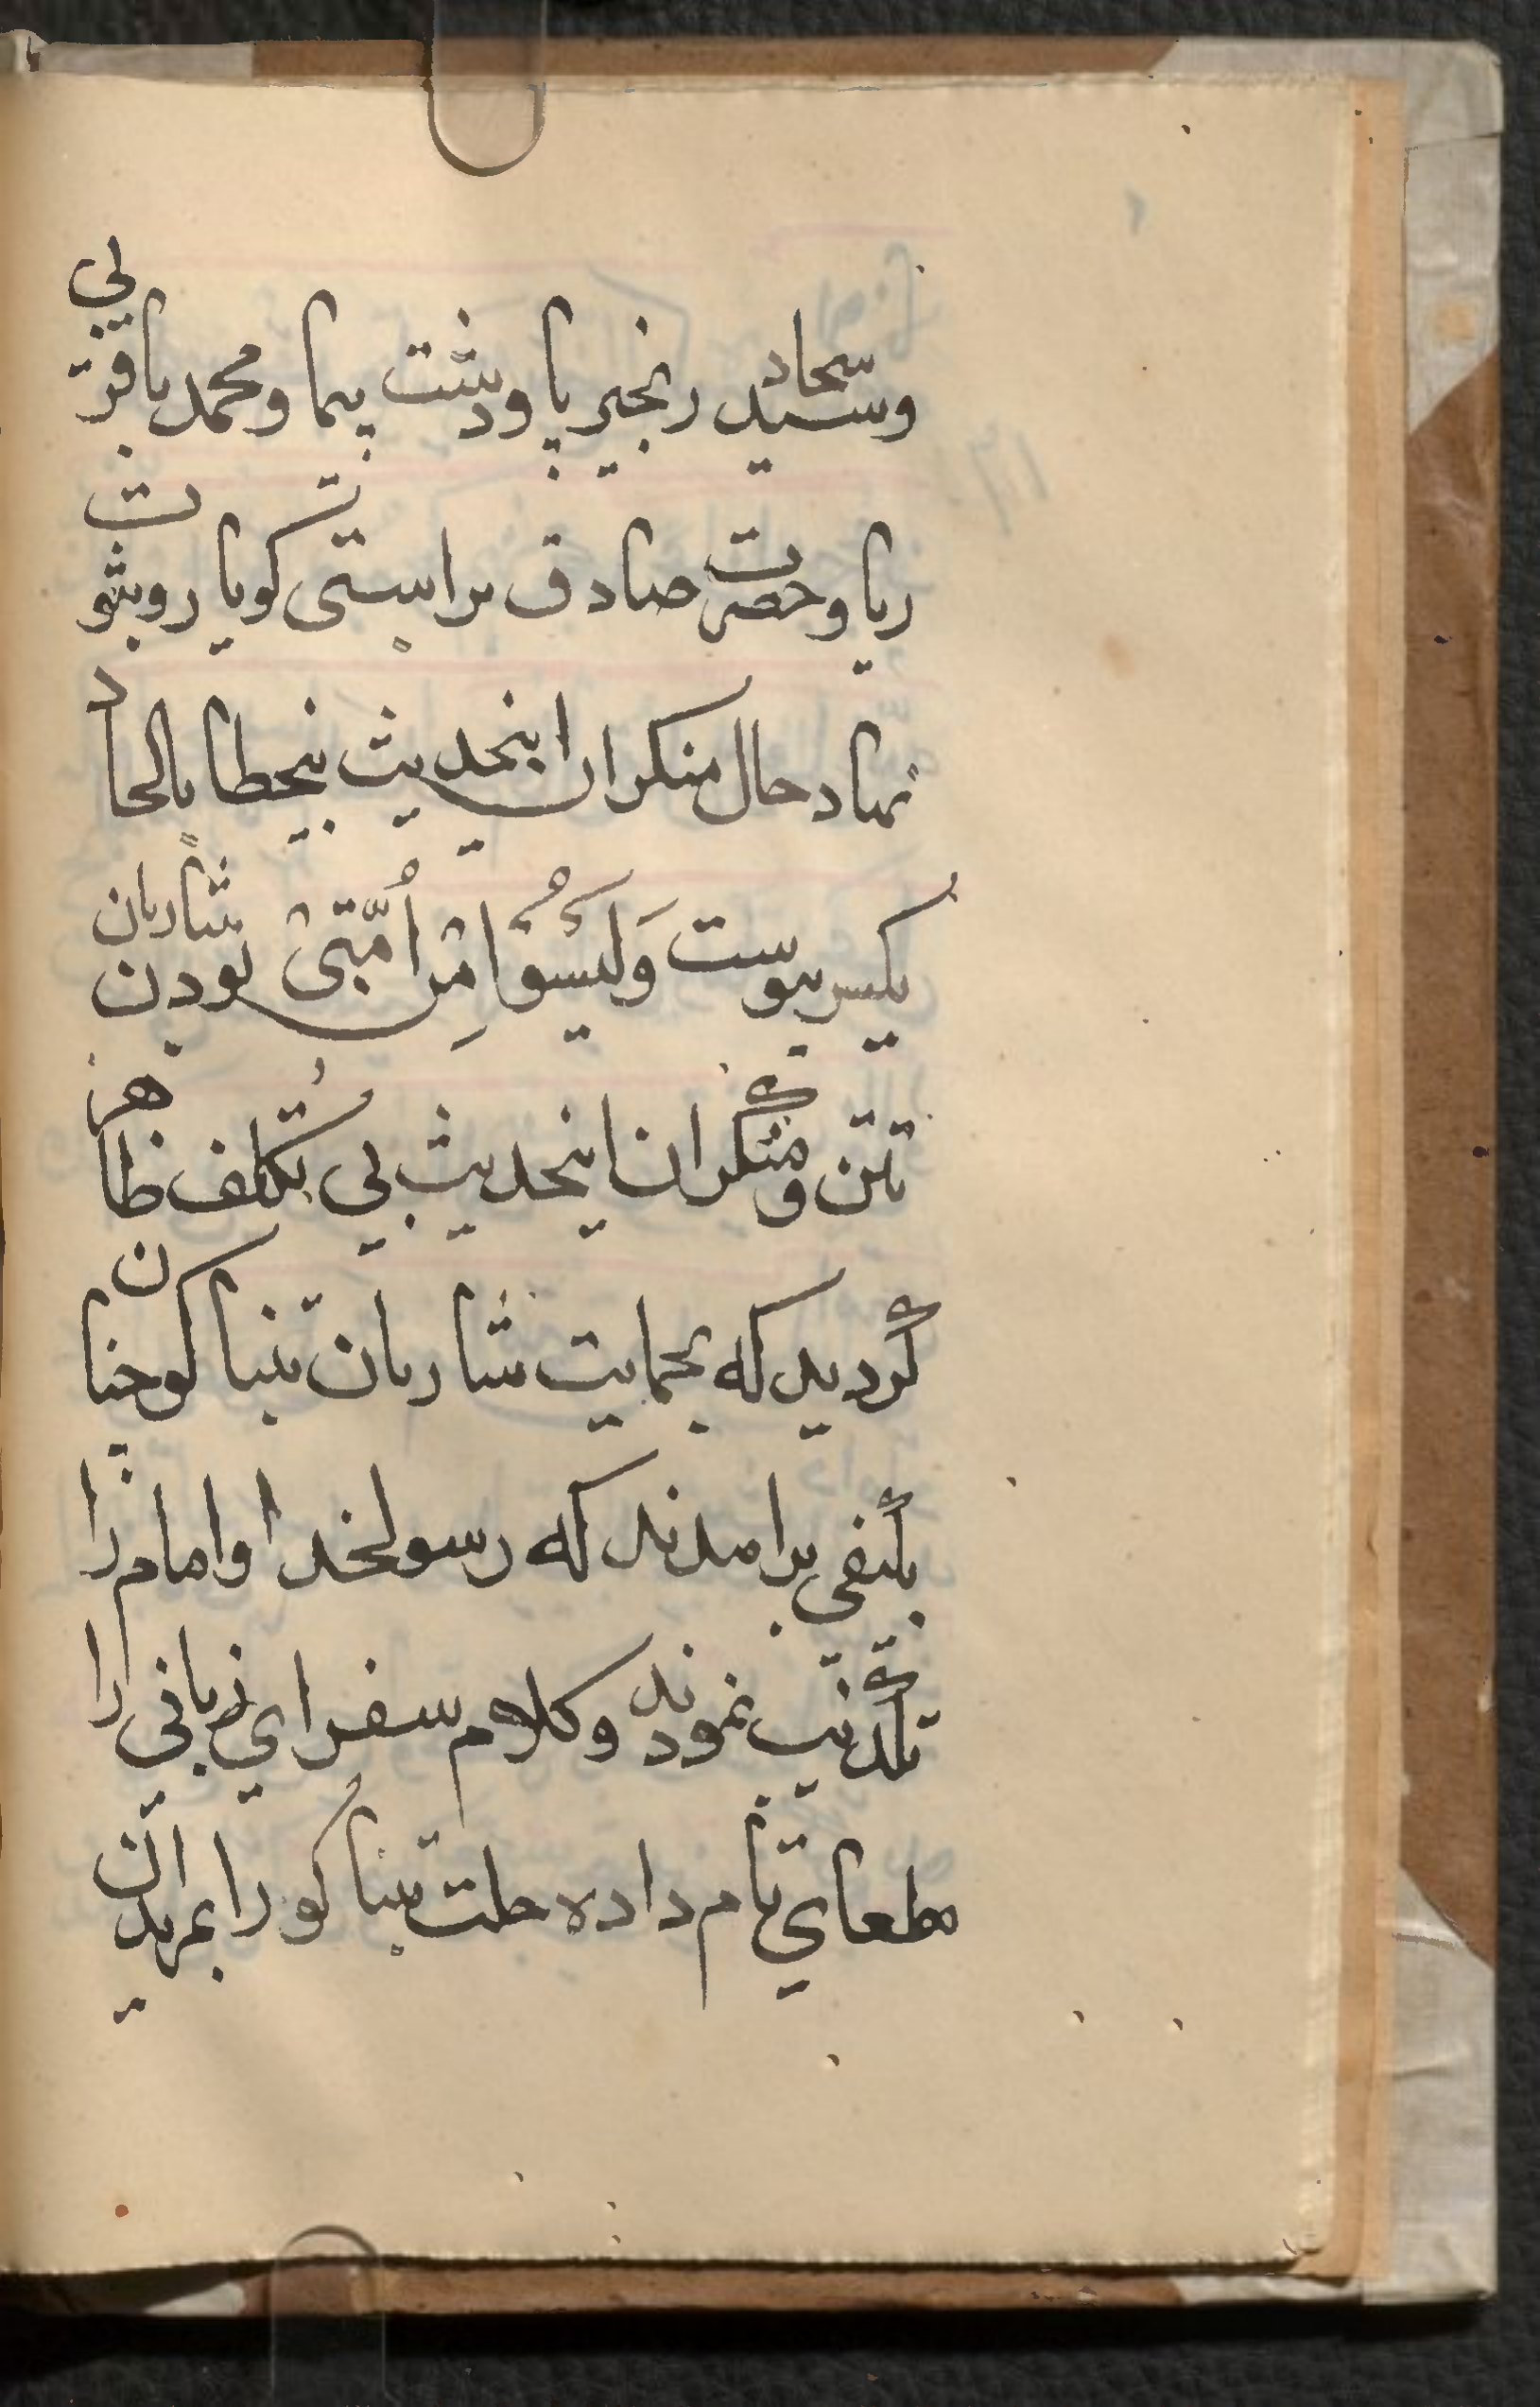 وسید سجاد زنجیر پا و دشت پیما و محمد باقر بی
ریا و حضرت صادق براستی کویا روبشو ت
نهاد حال منکران اینحدیث بیخطا بالحاد
یکسر پیوست وَلَیسُوْا مِنْ اُمَّتِیْ بودن شاربان
تتن و منکران اینحدیث بی تکلف ظاهر
گردید که بحمایت شاربان تنباکو چنان
بنفی برامدند که رسولخدا و امام را
تکذیب نمودند و کلام سفرای زبانی را
مطعای تام داده حلت تنباکو را بمریدان